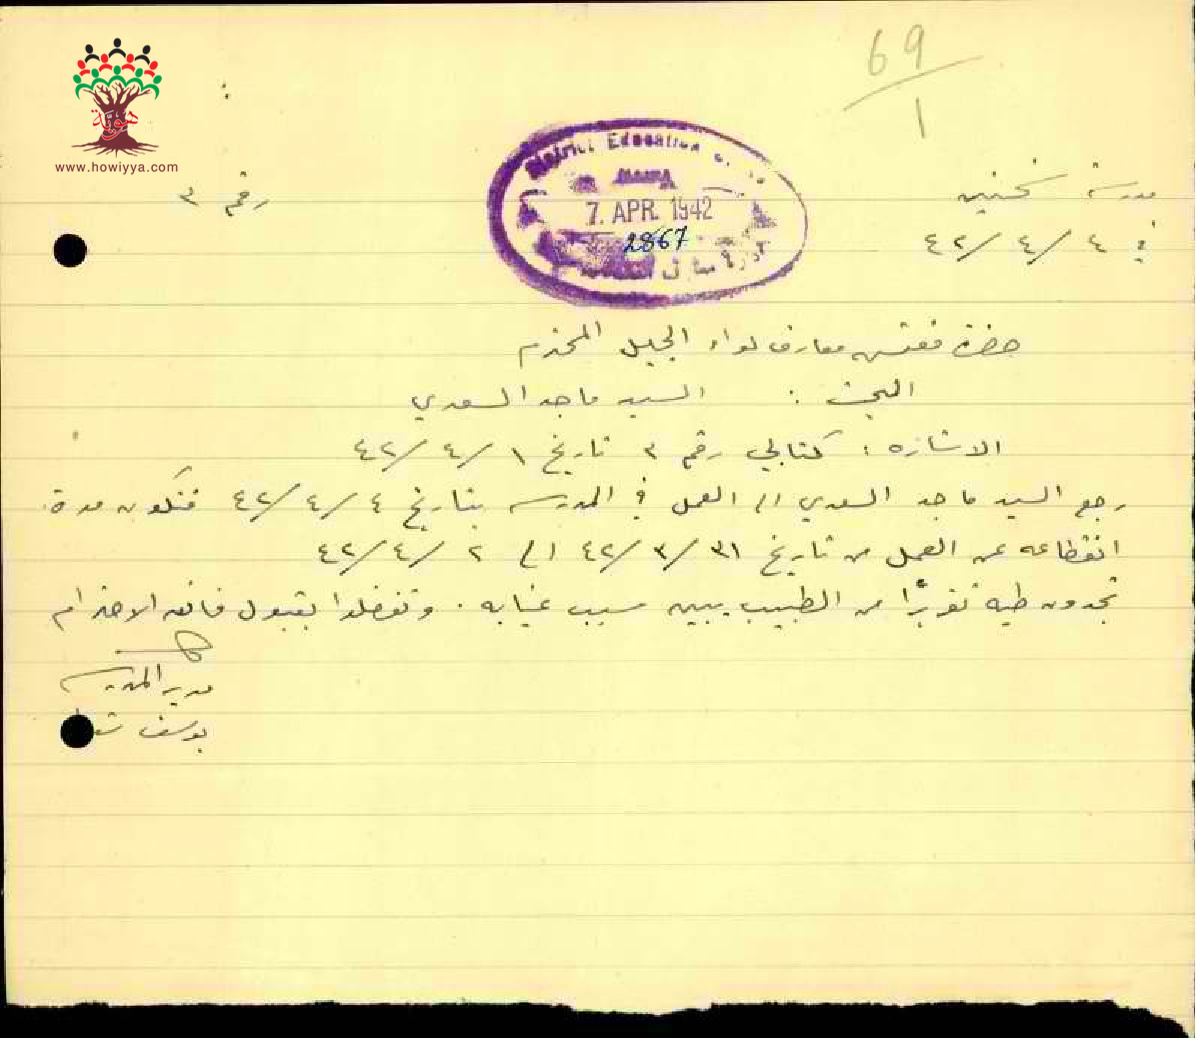 69
1
هوية
www.howiyya.com
District Education
7. APR. 1942
2867
مدرسة سخنين
رقم ٣
في ٤ / ٤ / ٤٢
حضرة مفتش معارف لواء الجليل المحترم
البحث : السيد ماجد السعدي
الاشارة : كتابي رقم ٢ تاريخ ١ / ٤ / ٤٢
رجع السيد ماجد السعدي الى العمل في المدرسة بتاريخ ٤ / ٤ / ٤٢ فتكون مدة
انقطاعه عن العمل من تاريخ ٣١ / ٣ / ٤٢ الى ٢ / ٤ / ٤٢
تجدون طيه تقريرًا من الطبيب يبين سبب غيابه . وتفضلوا بقبول فائق الاحترام
مدير المدرسة
يوسف